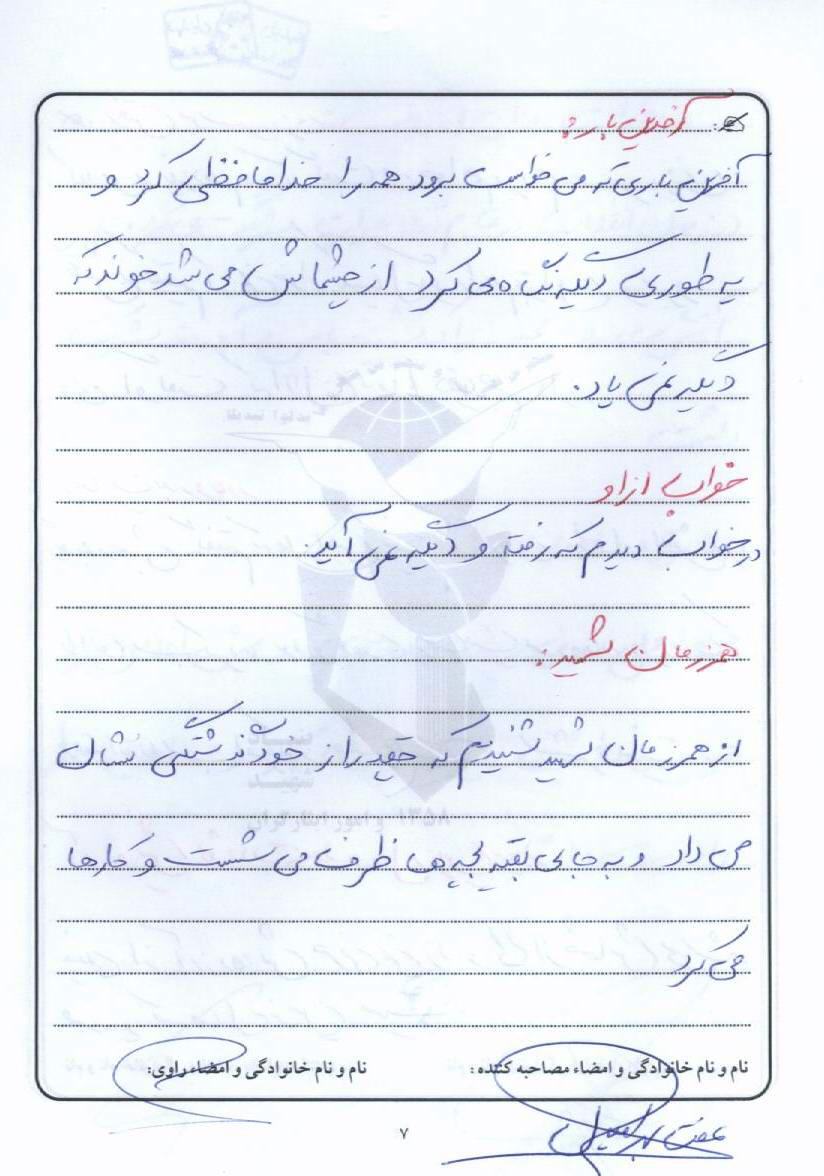 آخرین بار:
آخرین باری که می خواست برود همه را خداحافظی کرد و
یه طوری دیگه نگاه می کرد از چشماش می شد خوند که
دیگه نمی یاد.
خواب از او
در خواب دیدم که رفته و دیگه نمی آید.
همرزمان شهید:
از همرزمان شهید شنیدم که چقدر از خودگذشتگی نشان
می داد و به جای بقیه بچه ها ظرف می شست و کارها
می کرد
نام و نام خانوادگی و امضاء مصاحبه کننده :
نام و نام خانوادگی و امضاء راوی:
۷
بنیاد
شهید
و امور ایثارگران
۱۳۵۸